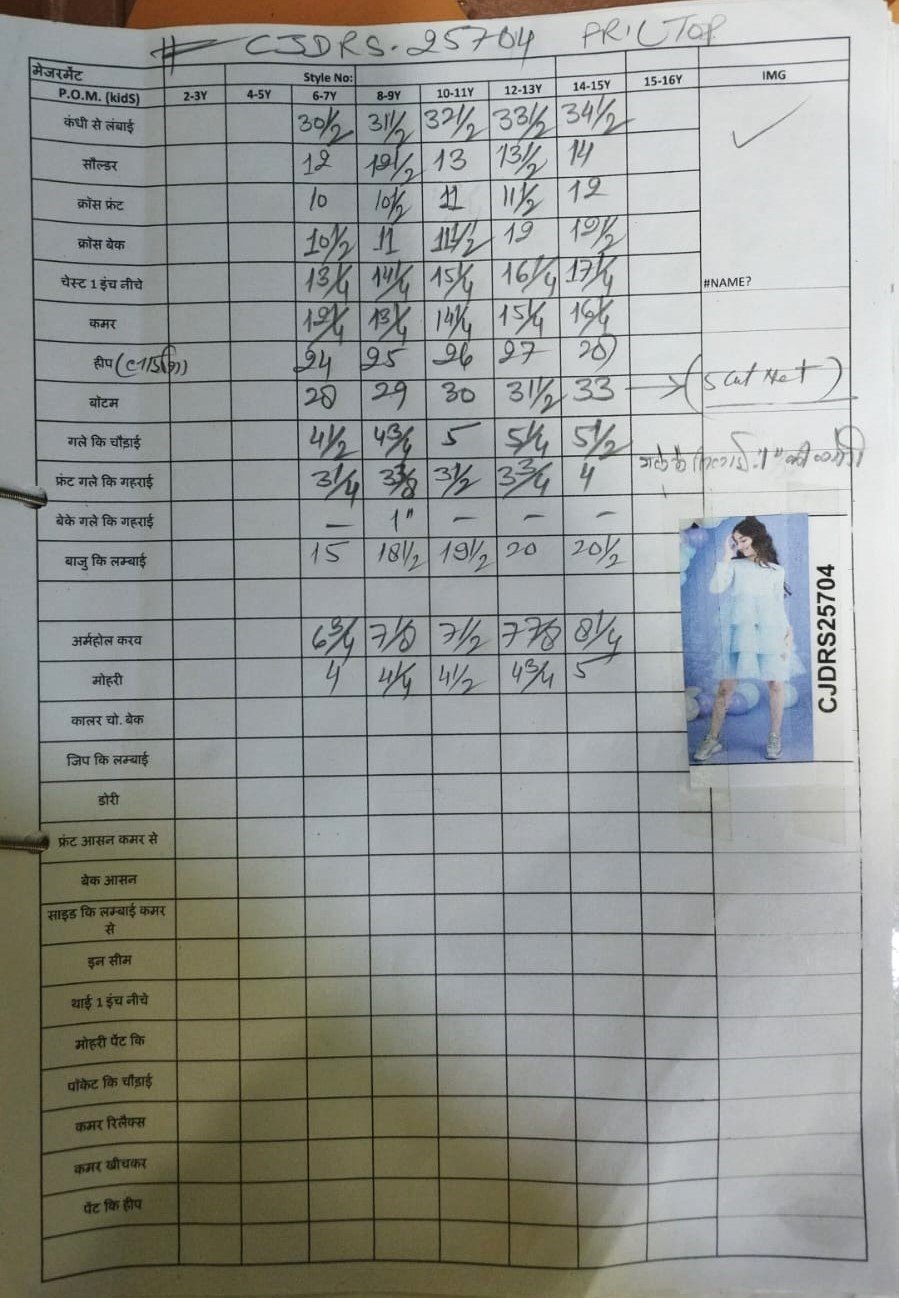 # CJDRS-25704
मेजरमेंट Style No:
P.O.M. (kidS) 2-3Y 4-5Y 6-7Y 8-9Y 10-11Y 12-13Y 14-15Y 15-16Y IMG
कंधी से लंबाई 30 1/2 31 1/2 32 1/2 33 1/2 34 1/2
सौल्डर 12 12 1/2 13 13 1/2 14
क्रॉस फ्रंट 10 10 1/2 11 11 1/2 12
क्रॉस बेक 10 1/2 11 11 1/2 12 12 1/2
चेस्ट 1 इंच नीचे 13 1/4 14 1/4 15 1/4 16 1/4 17 1/4 #NAME?
कमर 12 1/4 13 1/4 14 1/4 15 1/4 16 1/4
हीप 24 25 26 27 28
बॉटम 28 29 30 31 1/2 33
गले कि चौड़ाई 4 1/2 4 3/4 5 5 1/4 5 1/2
फ्रंट गले कि गहराई 3 1/4 3 3/8 3 1/2 3 3/4 4
बेके गले कि गहराई – 1" – – –
बाजु कि लम्बाई 15 18 1/2 19 1/2 20 20 1/2
अर्महोल करव 6 3/4 7 1/8 7 1/2 7 7/8 8 1/4
मोहरी 4 4 1/4 4 1/2 4 3/4 5
CJDRS25704
कालर चो. बेक
जिप कि लम्बाई
डोरी
फ्रंट आसन कमर से
बेक आसन
साइड कि लम्बाई कमर
से
इन सीम
थाई 1 इंच नीचे
मोहरी पेंट कि
पॉकेट कि चौड़ाई
कमर रिलैक्स
कमर खीचकर
पेंट कि हीप